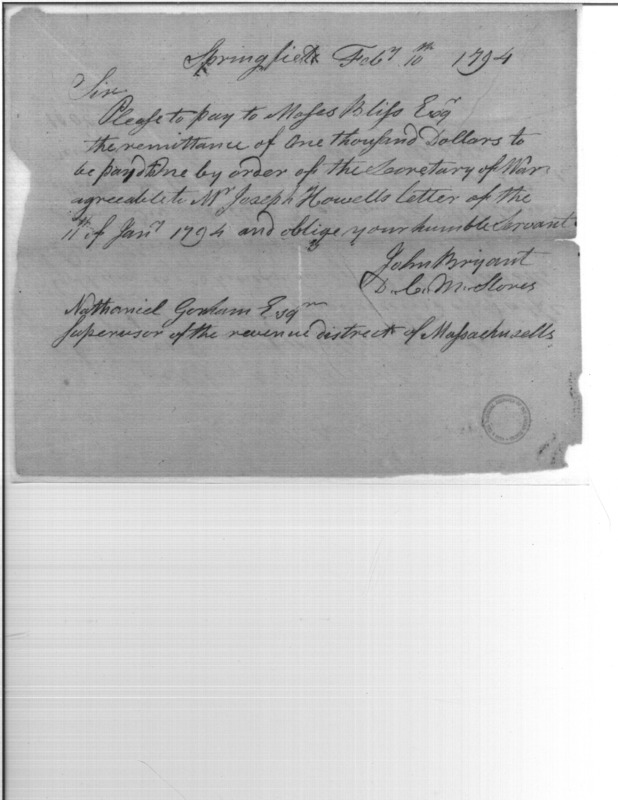 Springfield Feby 10th 1794
Sir
Please to pay to Moses Bliss Esqr
the remittance of One thousand Dollars to
be payd me by order of the Secretary of War
agreeable to Mr Joseph Howells letter of the
11th of Jany 1794 and oblige your humble Servant
John Bryant
D. C. M. Stores
Nathaniel Gorham Esqr
supervisor of the revenue district of Massachusetts